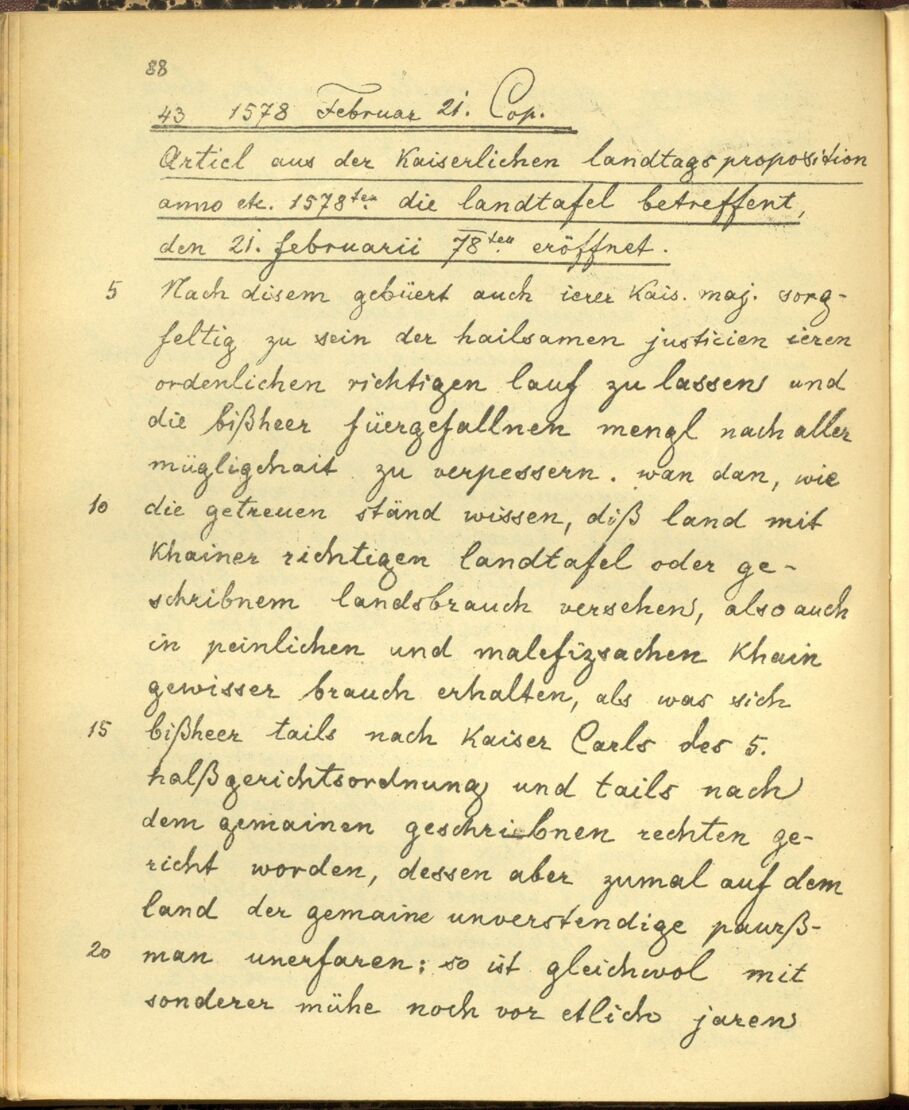 88
43 1578 Februar 21. Cop.
Articl aus der Kaiserlichen landtagsproposition
anno etc. 1578ten die landtafel betreffent,
den 21. februarii 78ten eröffnet.
5 Nach disem gebüert auch ierer Kais. maj. sorg-
feltig zu sein der hailsamen justicien ieren
ordenlichen richtigen lauf zu lassen und
die bißheer füergefallnen mengl nach aller
mügligchait zu verpessern. wan dan, wie
10 die getreuen ständ wissen, diß land mit
Khainer richtigen landtafel oder ge-
schribnem landsbrauch versehen, also auch
in peinlichen und malefizsachen Khain
gewisser brauch erhalten, als was sich
15 bißheer tails nach Kaiser Carls des 5.
halßgerichtsordnung und tails nach
dem gemainen geschribnen rechten ge-
richt worden, dessen aber zumal auf dem
land der gemaine unverstendige paurß-
20 man unerfaren: so ist gleichwol mit
sonderer mühe noch vor etlich jaren